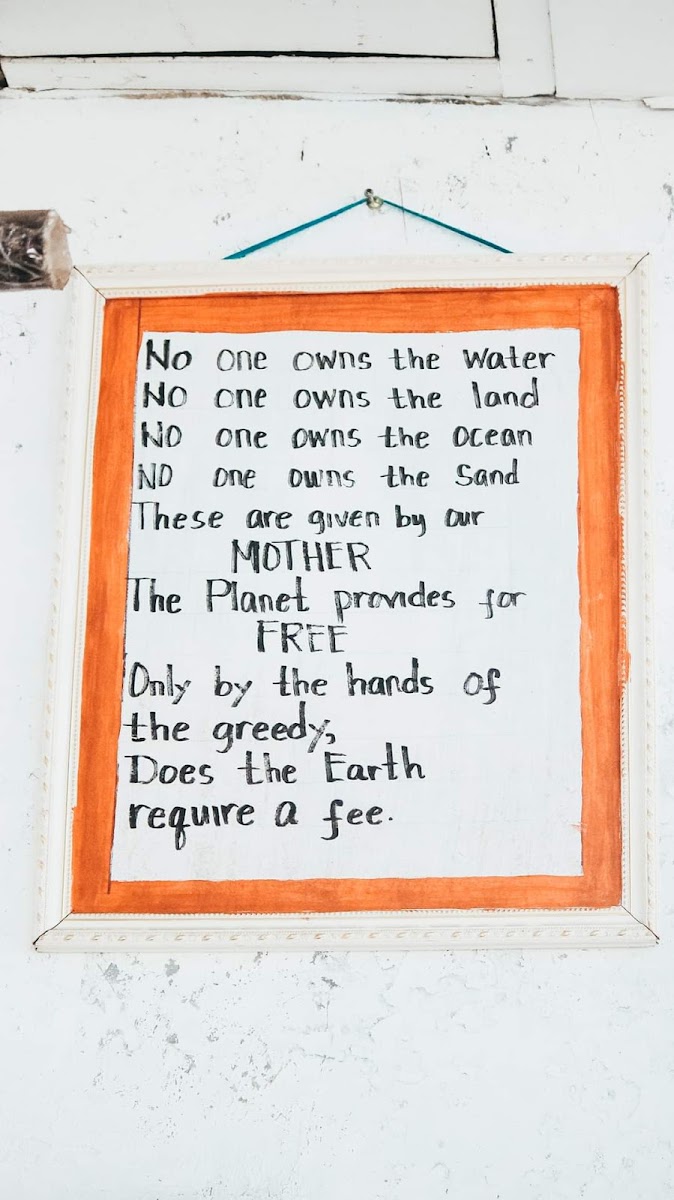 No one owns the Water
NO one owns the land
NO one owns the Ocean
NO one owns the Sand
These are given by our
MOTHER
The Planet provides for
FREE
Only by the hands of
the greedy,
Does the Earth
require a fee.